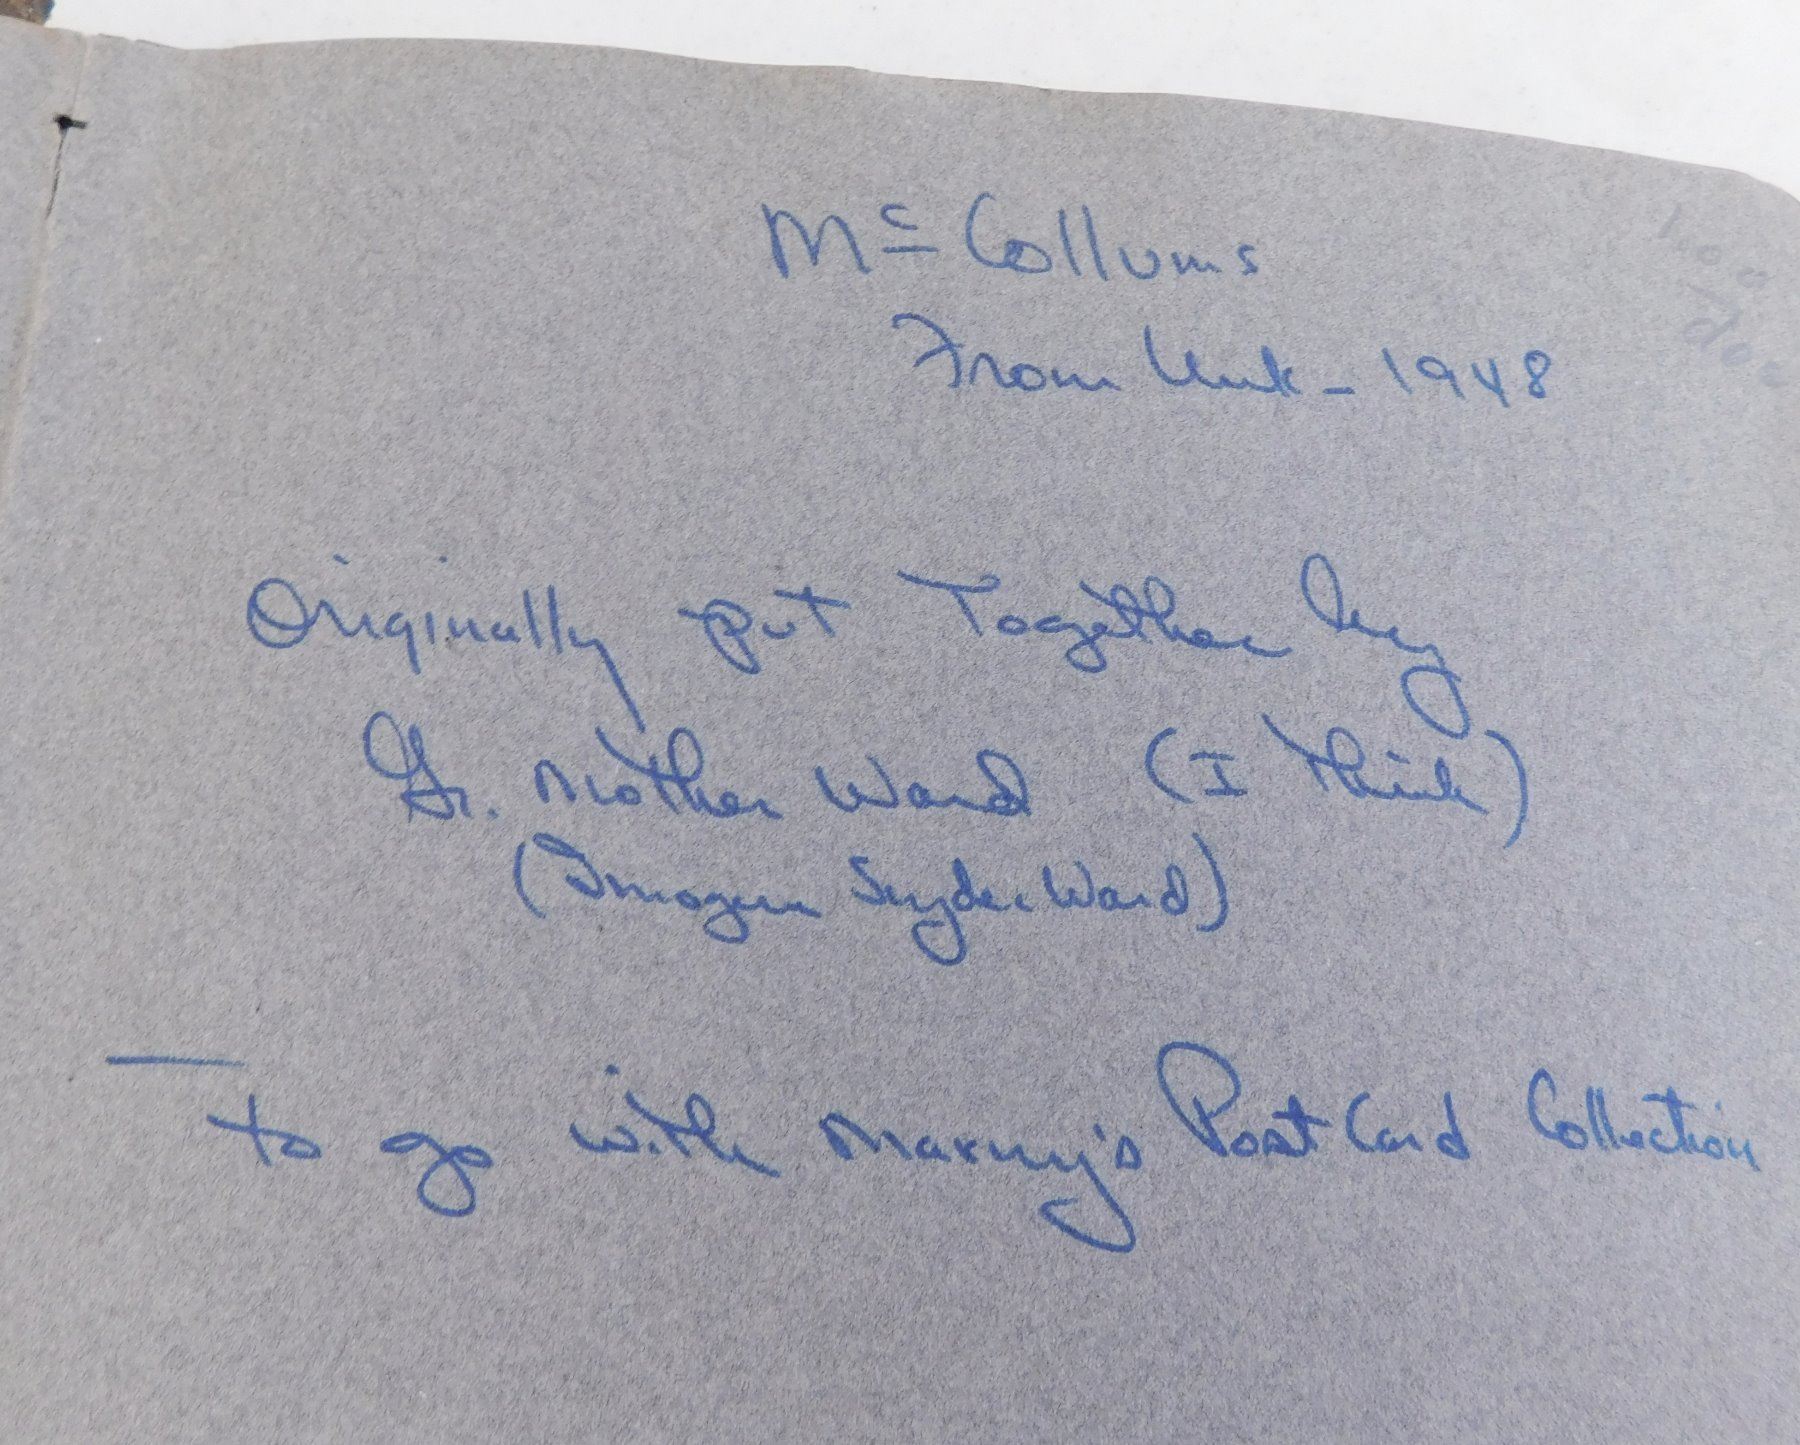 Mc Collums
From Unk - 1948
Originally put Together by
Gr. Mother Ward (I Think)
(Imogene Snyder Ward)
To go with Post Card Collection